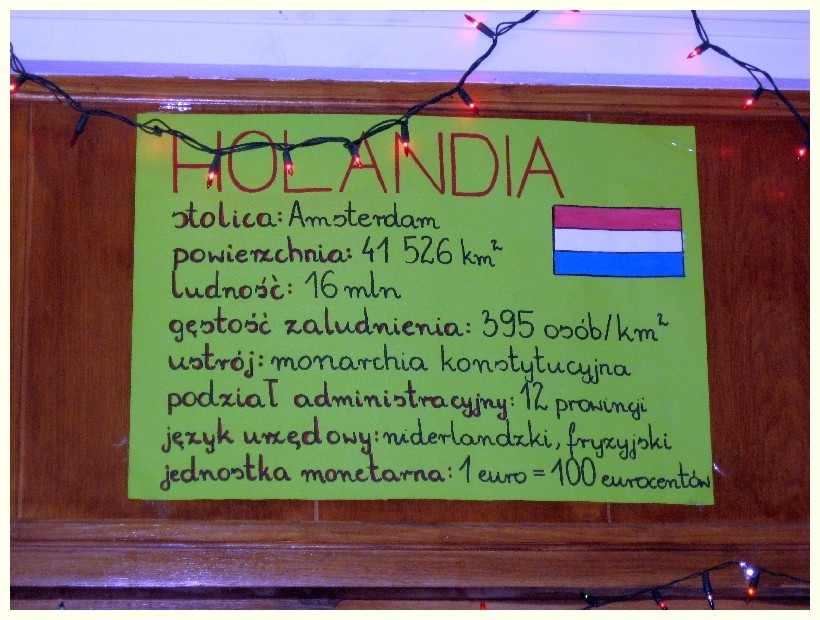 HOLANDIA
stolica: Amsterdam
powierzchnia: 41 526 km²
ludność: 16 mln
gęstość zaludnienia: 395 osób/km²
ustrój: monarchia konstytucyjna
podział administracyjny: 12 prowingi
język urzędowy: niderlandzki, fryzyjski
jednostka monetarna: 1 euro = 100 eurocentów